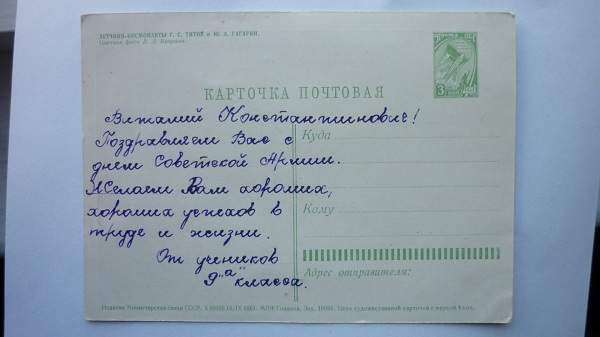 ЛЕТЧИКИ-КОСМОНАВТЫ Г. С. ТИТОВ и Ю. А. ГАГАРИН.
Цветное фото
КАРТОЧКА ПОЧТОВАЯ
3
Виталий Константинович!
Поздравляем Вас с
днем Советской Армии.
Желаем Вам хороших,
хороших успехов в
труде и жизни.
От учеников
9 "а" класса.
Куда
Кому
Адрес отправителя:
Издание Министерства связи СССР. МПФ Гознака. Зак. Цена художественной карточки с маркой 4 коп.